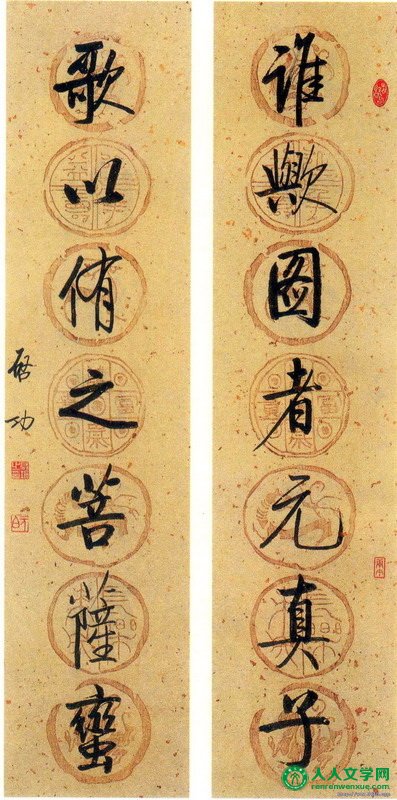 谁歟图者元真子
歌以侑之菩薩蠻
启功
人人文学网
renrenwenxue.com